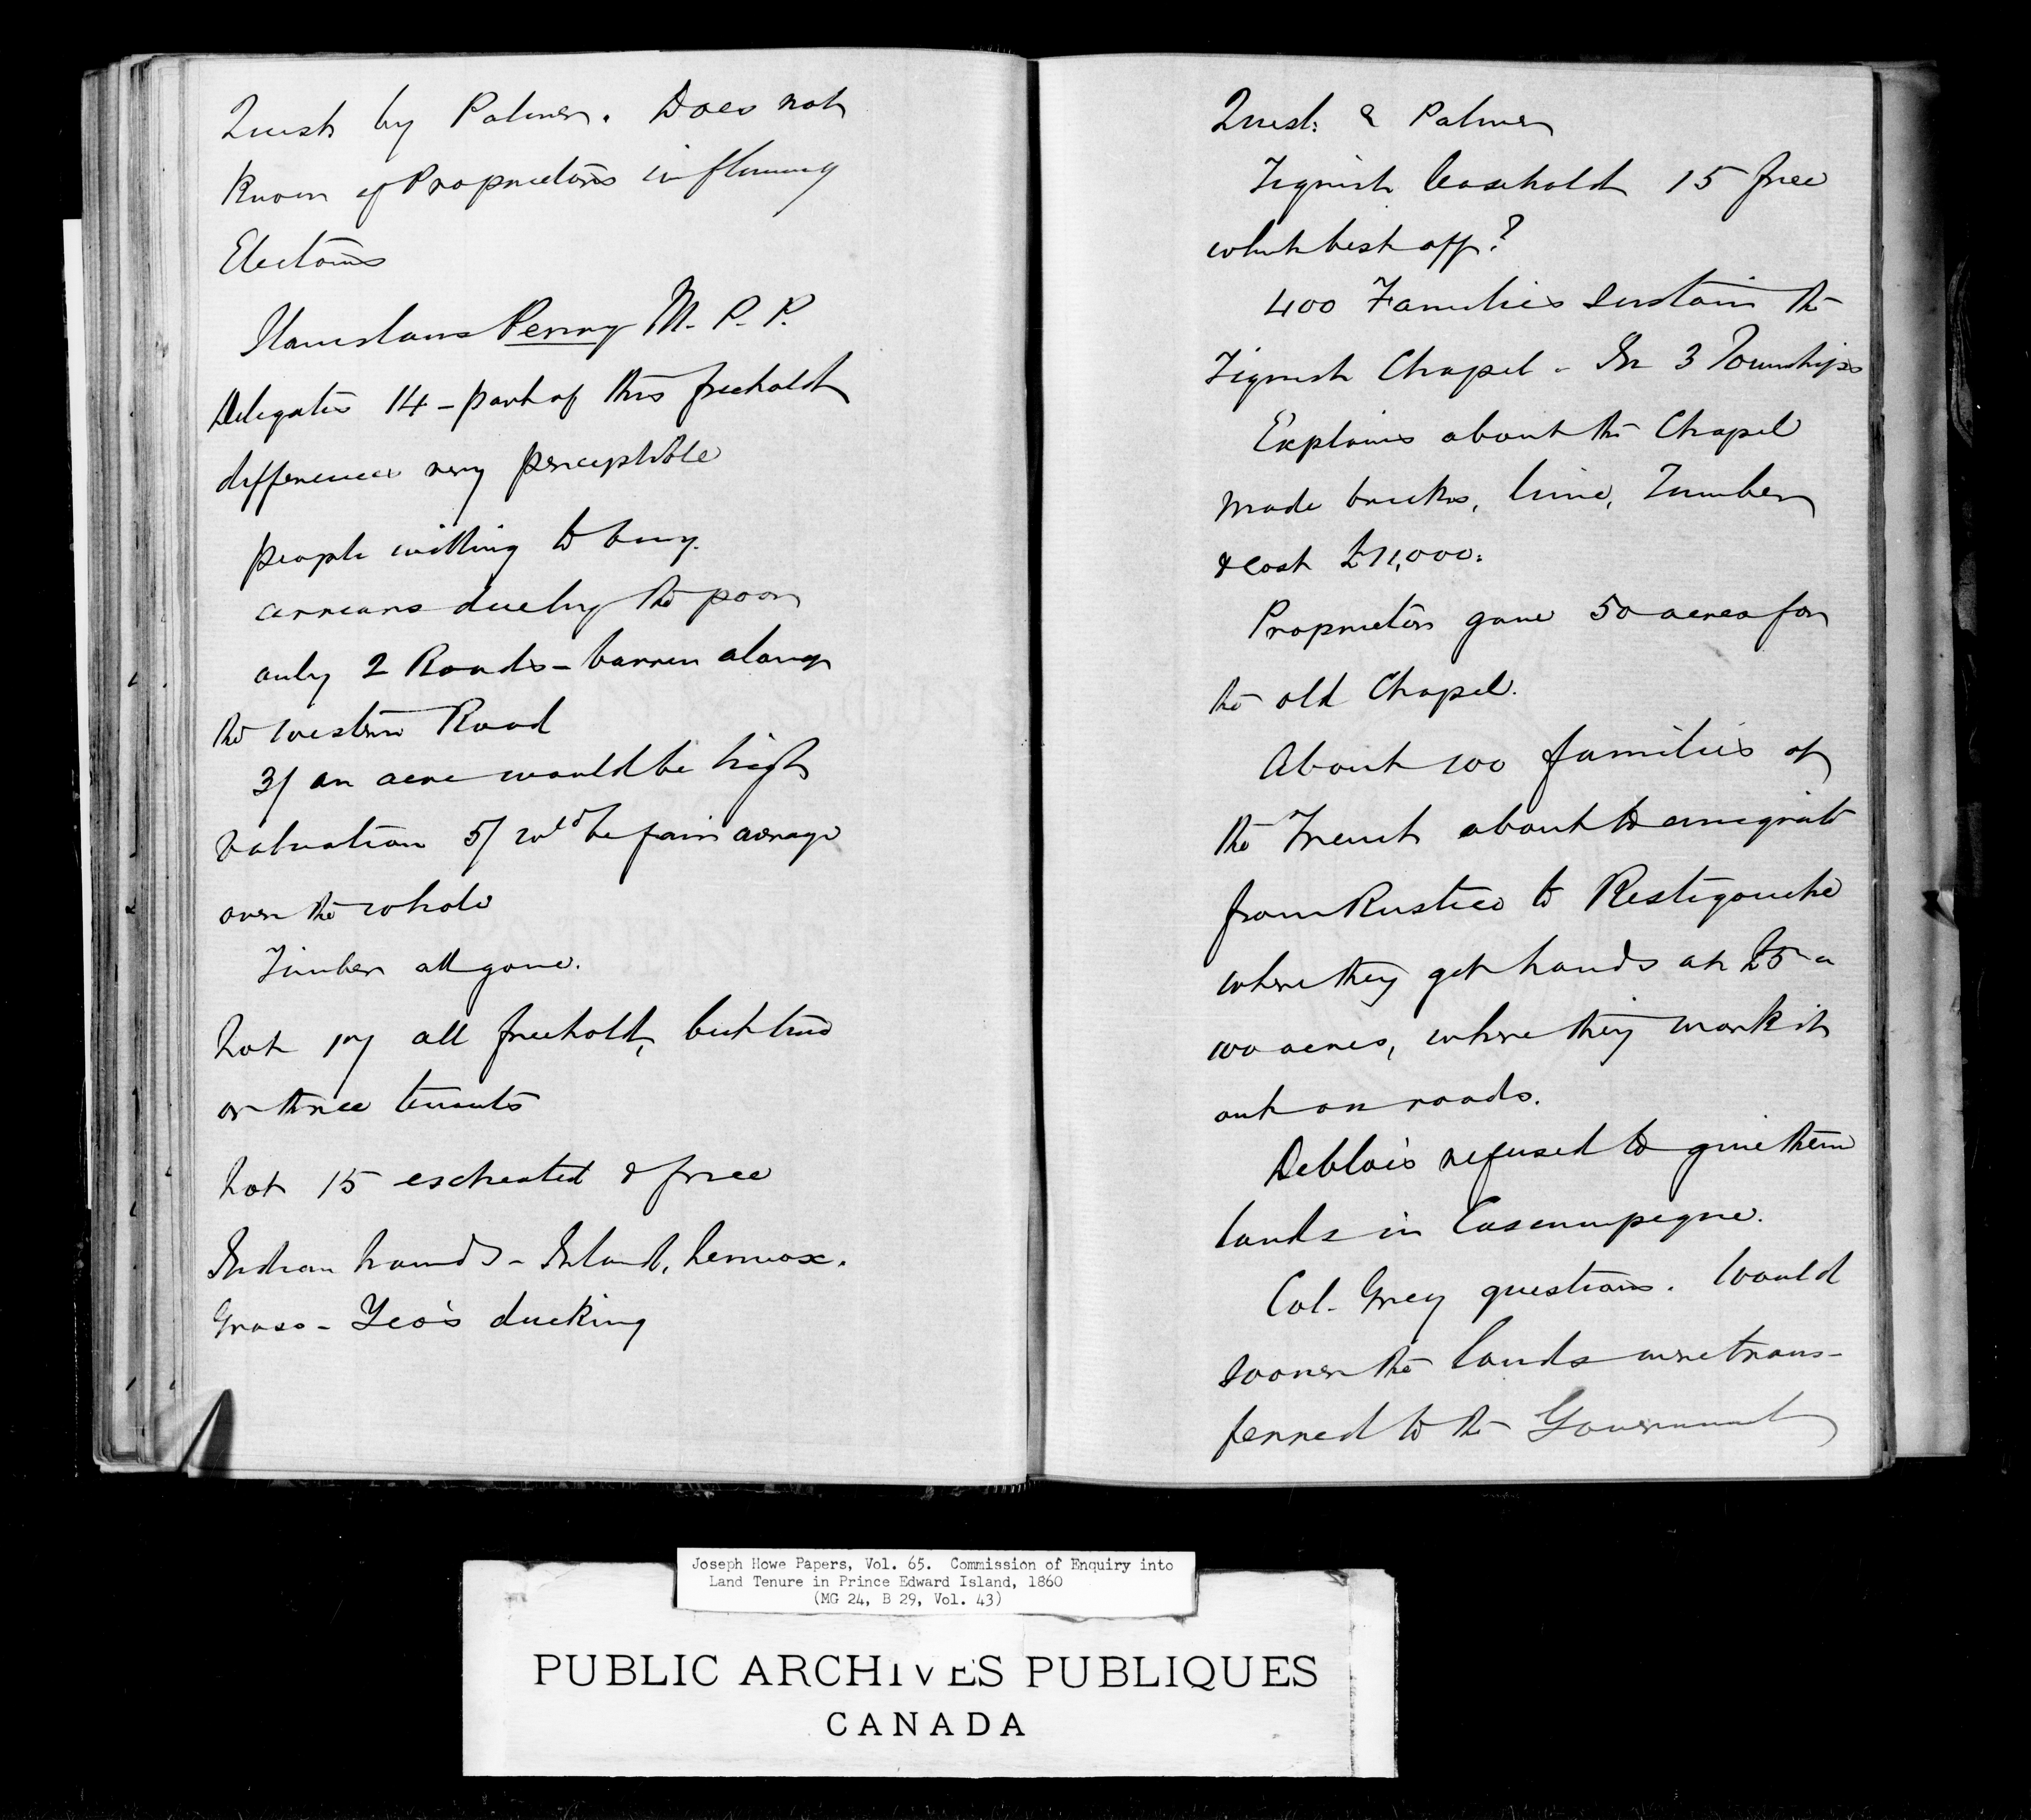 Quest by Palmer. Does not
know of Proprietors influencing
Elections
Stanislaus Perry M. P. P.
Delegates 14 - part of this freehold
differences very perceptible
people willing to buy.
arrears due by the poor
only 2 Roads - barren along
the western Road
3/ an acre would be high
valuation 5/ wld be fair average
over the whole
Timber all gone.
Lot 17 all freehold, but two
or three tenants
Lot 15 escheated & free
Indian Lands - Island, Lennox.
Grass - Yeo's ducking
Quest: & Palmer
Tignish leasehold 15 free
which best off?
400 Families sustain the
Tignish Chapel - In 3 Townships
Explains about the Chapel
made bricks, lime, Timber
& cost £11,000.
Proprietors gave 50 acres for
the old Chapel.
About 100 families of
the French about to emigrate
from Rustico to Restigouche
where they get lands at £5 a
100 acres, where they work it
out on roads.
Deblois refused to give them
lands in Cascumpeque.
Col. Grey questions. Would
sooner the lands were trans-
ferred to the Government
Joseph Howe Papers, Vol. 65. Commission of Enquiry into
Land Tenure in Prince Edward Island, 1860
(MG 24, B 29, Vol. 43)
PUBLIC ARCHIVES PUBLIQUES
CANADA